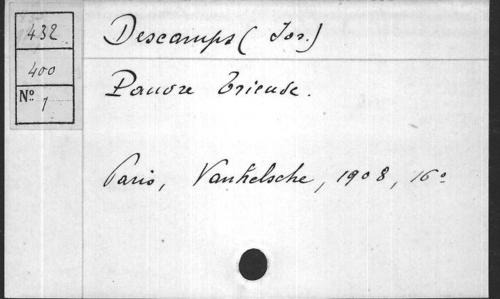 432
400
Nº 1
Descamps (Jos.)
Pauvre Trieuse.
Paris, Vanhelsche, 1908, 16º